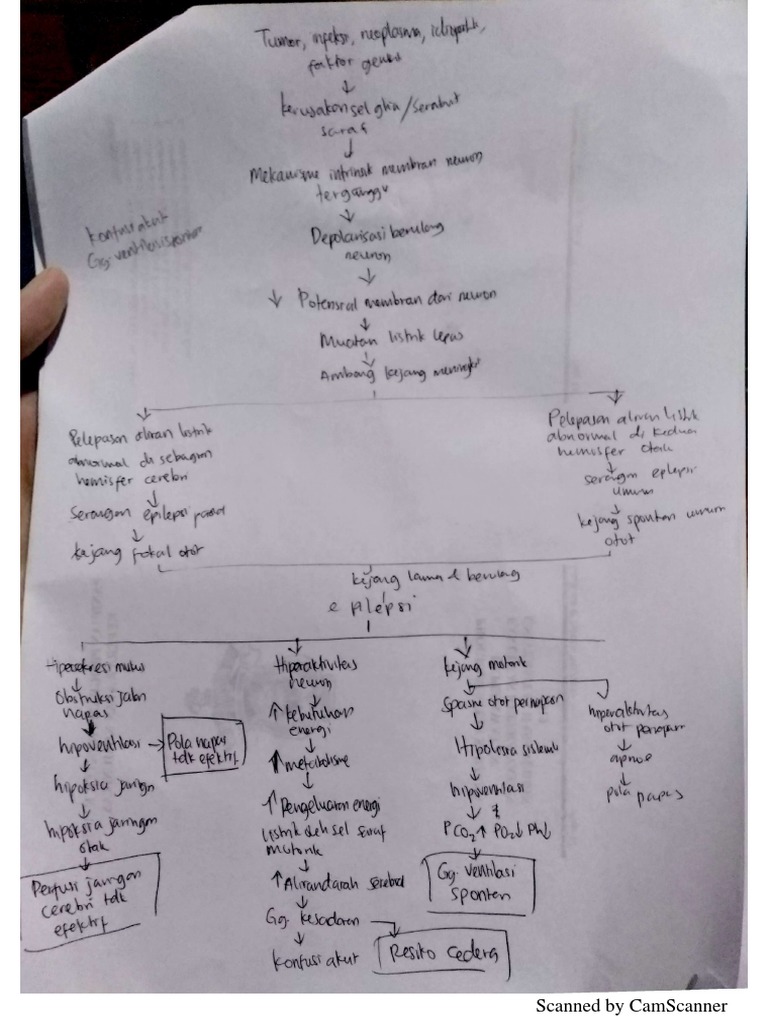 Tumor, infeksi, neoplasma, idiopatik,
faktor genetik
↓
kerusakan sel glia/serabut
saraf
↓
Mekanisme intrinsik membran neuron
terganggu
↓
Konfusi akut
Gg. ventilasi spontan
Depolarisasi berulang
neuron
↓
↓ Potensial membran dari neuron
↓
Muatan listrik lepas
↓
Ambang kejang meningkat
↓
Pelepasan aliran listrik
abnormal di sebagian
hemisfer cerebri
↓
Serangan epilepsi parsial
↓
kejang fokal otot
↓
Pelepasan aliran listrik
abnormal di kedua
hemisfer otak
↓
serangan epilepsi
umum
↓
kejang spontan umum
otot
kejang lama & berulang
epilepsi
Hipersekresi mukus
↓
Obstruksi jalan
napas
↓
hipoventilasi → Pola napas
tdk efektif
↓
hipoksia jaringan
↓
hipoksia jaringan
otak
↓
Perfusi jaringan
cerebri tdk
efektif
↓
Hiperaktivitas
neuron
↓
↑ kebutuhan
energi
↓
↑ metabolisme
↓
↑ Pengeluaran energi
listrik oleh sel saraf
motorik
↓
↑ Aliran darah serebral
↓
Gg. kesadaran → Resiko cedera
↓
konfusi akut
↓
kejang motorik
↓
Spasme otot pernapasan
↓
Hipoksia sistemik
↓
hipoventilasi
↓
PCO₂↑ PO₂↓ Ph↓
↓
Gg. ventilasi
spontan
↓
hiperaktivitas
otot
↓
apnoe
↓
pola
Scanned by CamScanner